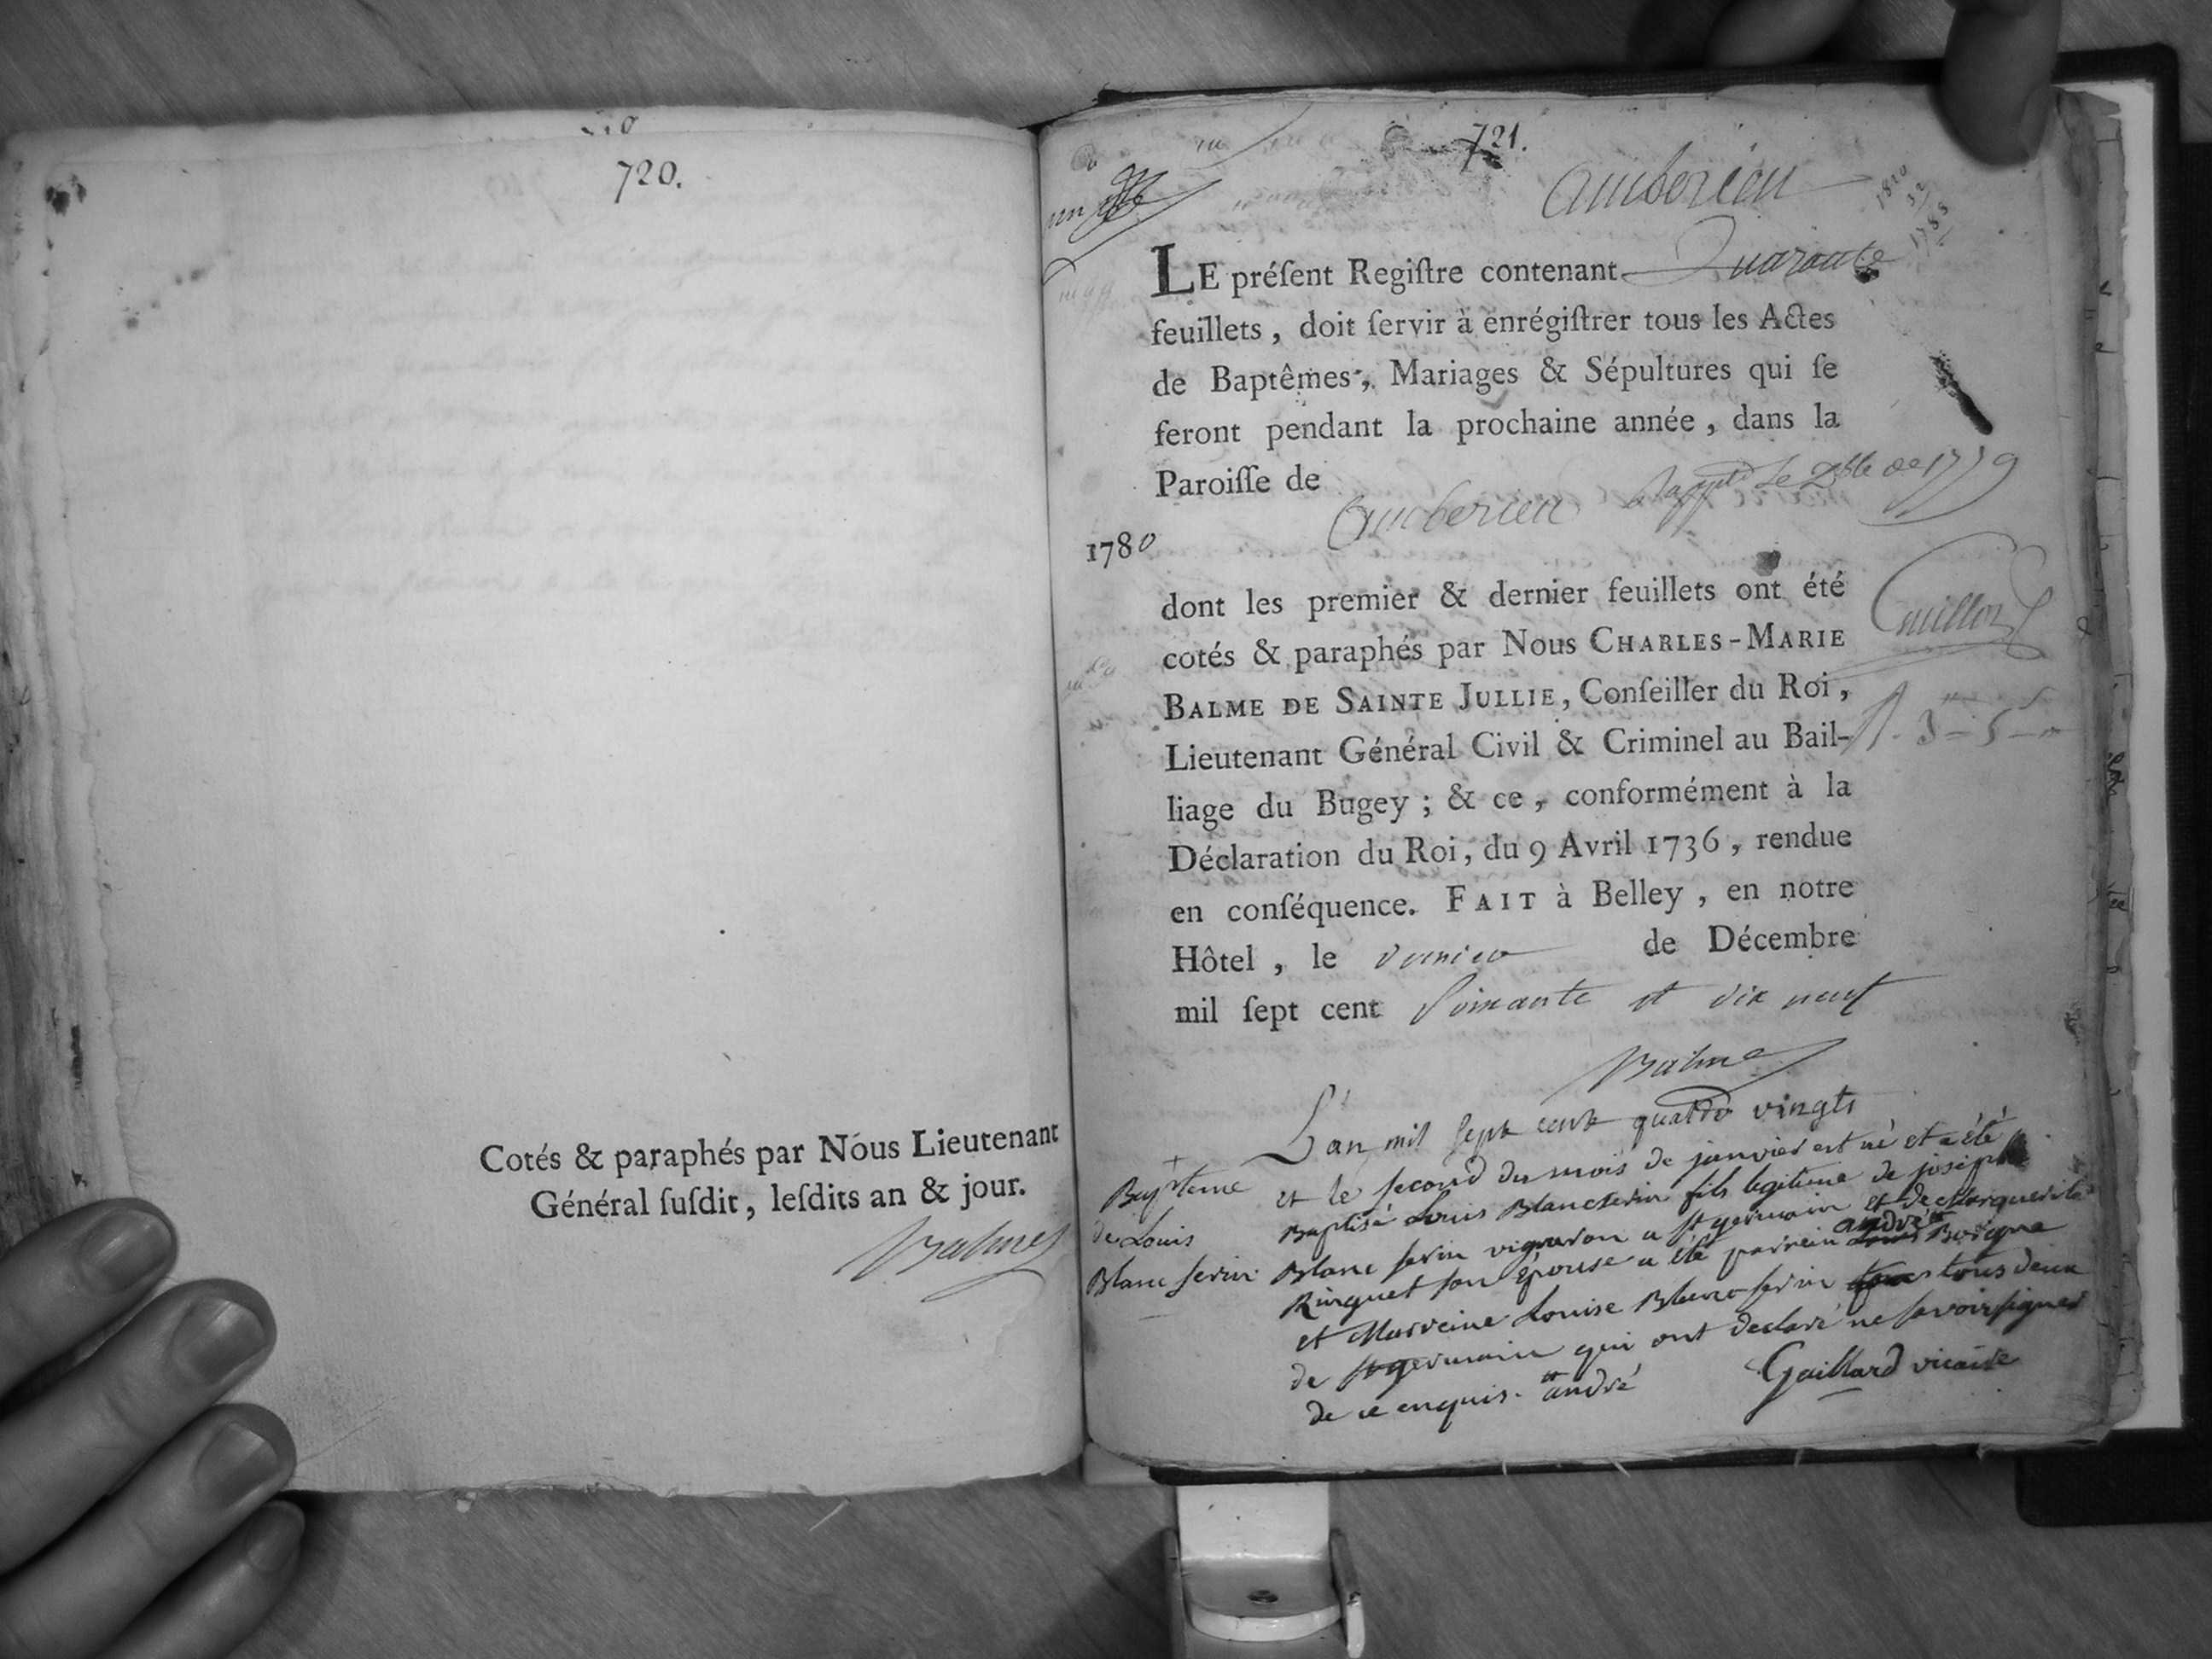 720.
Cotés & paraphés par Nous Lieutenant
Général ſuſdit, leſdits an & jour.
Balme
721.
Amberieu
LE préſent Regiſtre contenant Quarante
feuillets, doit ſervir à enrégiſtrer tous les Actes
de Baptêmes, Mariages & Sépultures qui ſe
feront pendant la prochaine année, dans la
Paroiſſe de
Amberieu le de 1779
1780
dont les premier & dernier feuillets ont été
cotés & paraphés par Nous CHARLES-MARIE
BALME DE SAINTE JULLIE, Conſeiller du Roi,
Lieutenant Général Civil & Criminel au Bail-
liage du Bugey ; & ce, conformément à la
Déclaration du Roi, du 9 Avril 1736, rendue
en conſéquence. FAIT à Belley, en notre
Hôtel, le dernier de Décembre
mil ſept cent Soixante et dix neuf
Balme
L'an mil sept cent quatre vingts
Bapteme
de Louis
Blanc serin
et le second du mois de janvier est né et a été
Baptisé Louis Blancserin fils legitime de joseph
Blanc serin vigneron a st germain et de Marguerite
Ringuet son épouse a été parrein andré
et Marreine Louise Blanc serin tous deux
de st germain qui ont declaré ne savoir signer
de ce enquis. andré Gaillard vicaire